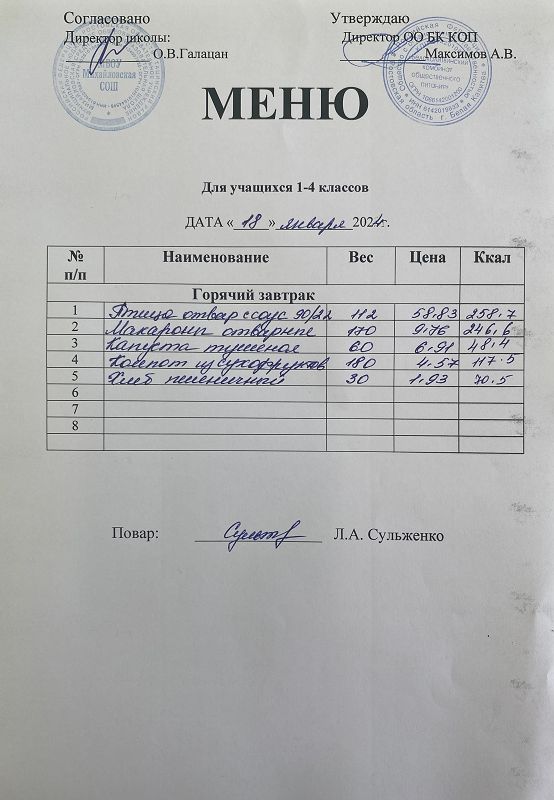 Согласовано Утверждаю
Директор школы: Директор ОО БК КОП
О.В.Галацан Максимов А.В.
МБОУ
Михайловская
СОШ
комбинат
общественного
питания
МЕНЮ
Для учащихся 1-4 классов
ДАТА «18» января 2024г.
№ п/п Наименование Вес Цена Ккал
Горячий завтрак
1 Птица отвар с соус 90/22 112 58.83 258.7
2 Макароны отварные 170 9.76 246.6
3 Капуста тушеная 60 6.91 48.4
4 Компот из сухофруктов 180 4.57 117.5
5 Хлеб пшеничный 30 1.93 70.5
6
7
8
Повар: Л.А. Сульженко